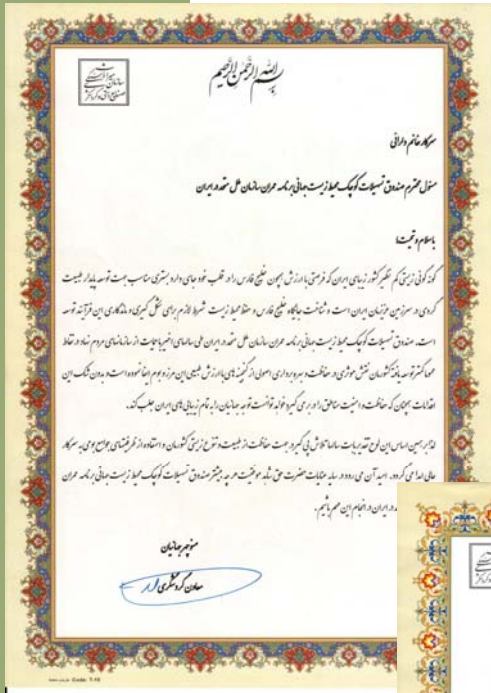 بسم الله الرحمن الرحیم
سرکار خانم دارائی
مسئول محترم صندوق تسهیلات کوچک محیط زیست جهانی برنامه عمران سازمان ملل متحد در ایران
باسلام و تحیت؛
گونه گونی زیستی کم نظیر کشور زیبای ایران که فرصتی با ارزش همچون خلیج فارس را در قلب خود جای دارد بستری مناسب جهت توسعه پایدار طبیعت
گردی در سرزمین عزیزمان ایران است و شناخت جایگاه خلیج فارس و حفظ محیط زیست شرط لازم برای شکل گیری و ماندگاری این فرآیند توسعه
است. صندوق تسهیلات کوچک محیط زیست جهانی برنامه عمران سازمان ملل متحد در ایران طی سالهای اخیر با حمایت از سازمانهای مردم نهاد در نقاط
کمتر توسعه یافته کشورمان نقش موثری در حفاظت و بهره برداری اصولی از گنجینه های با ارزش طبیعی این مرز و بوم ایفا نموده است و بدون شک این
اقدامات همچنان که حفاظت و امنیت مناطق را در بر می گیرد خواهد توانست توجه جهانیان را به تمام زیبایی های ایران جلب کند.
لذا بر همین اساس این لوح تقدیر بپاس سالها تلاش پی گیر در جهت حفاظت از طبیعت و تنوع زیستی کشورمان و استفاده از ظرفیتهای جوامع بومی به سرکار
عالی اهدا می گردد. امید آن می رود در سایه عنایات حضرت حق شاهد موفقیت هر چه بیشتر صندوق تسهیلات کوچک محیط زیست جهانی برنامه عمران
در ایران در انجام این مهم باشیم.
منوچهر جهانیان
معاون گردشگری
Code: T-10